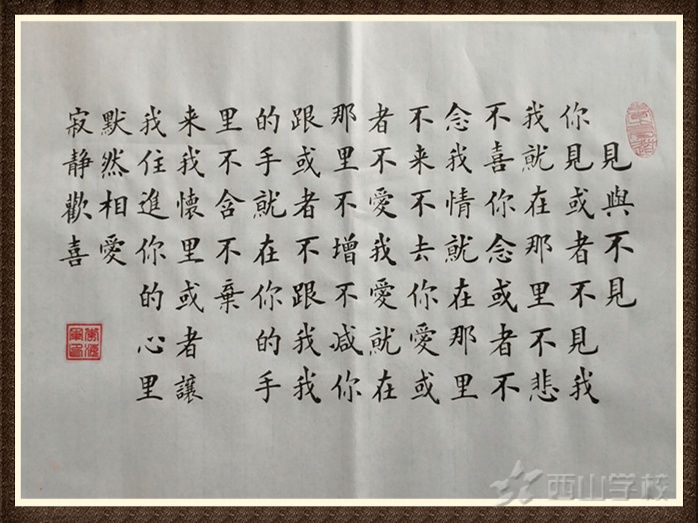 見與不見
你見或者不見我
我就在那里不悲
不喜你念或者不
念我情就在那里
不来不去你愛或
者不愛我愛就在
那里不增不减你
跟或者不跟我我
的手就在你的手
里不舍不棄
来我懷里或者讓
我住進你的心里
默然相愛
寂靜歡喜
西山学校